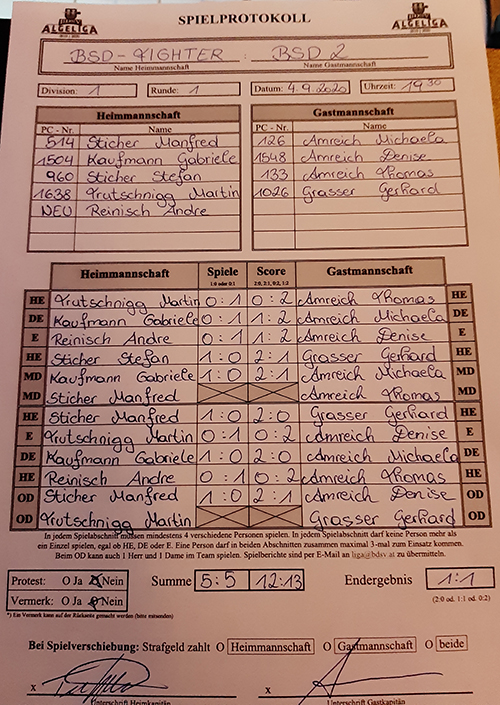 SPIELPROTOKOLL
ALGELIGA
ALGELIGA
BSD-FIGHTER : BSD 2
Name Heimmannschaft Name Gastmannschaft
Division: 1 Runde: 1 Datum: 4.9.2020 Uhrzeit: 19 30
Heimmannschaft Gastmannschaft
PC - Nr. Name PC - Nr. Name
514 Sticher Manfred 126 Amreich Michaela
1504 Kaufmann Gabriele 1548 Amreich Denise
960 Sticher Stefan 133 Amreich Thomas
1638 Trutschnigg Martin 1026 Grasser Gerhard
NEU Reinisch Andre
Heimmannschaft Spiele Score Gastmannschaft
1:0 oder 0:1 2:0, 2:1, 0:2, 1:2
HE Trutschnigg Martin 0:1 0:2 Amreich Thomas HE
DE Kaufmann Gabriele 0:1 1:2 Amreich Michaela DE
E Reinisch Andre 0:1 1:2 Amreich Denise E
HE Sticher Stefan 1:0 2:1 Grasser Gerhard HE
MD Kaufmann Gabriele 1:0 2:1 Amreich Michaela MD
MD Sticher Manfred Amreich Thomas MD
HE Sticher Manfred 1:0 2:0 Grasser Gerhard HE
E Trutschnigg Martin 0:1 0:2 Amreich Denise E
DE Kaufmann Gabriele 1:0 2:0 Amreich Michaela DE
HE Reinisch Andre 0:1 0:2 Amreich Thomas HE
OD Sticher Manfred 1:0 2:1 Amreich Denise OD
OD Trutschnigg Martin Grasser Gerhard OD
In jedem Spielabschnitt müssen mindestens 4 verschiedene Personen spielen. In jedem Spielabschnitt darf keine Person mehr als
ein Einzel spielen, egal ob HE, DE oder E. Eine Person darf in beiden Abschnitten zusammen maximal 3-mal zum Einsatz kommen.
Beim OD kann auch 1 Herr und 1 Dame im Team spielen. Spielberichte sind per E-Mail an liga@bdsv.at zu übermitteln.
Protest: O Ja O Nein Summe 5:5 12:13 Endergebnis 1:1
Vermerk: O Ja O Nein (2:0 od. 1:1 od. 0:2)
*) Ein Vermerk kann auf der Rückseite gemacht werden (bitte mitsenden)
Bei Spielverschiebung: Strafgeld zahlt O Heimmannschaft O Gastmannschaft O beide
x x
Unterschrift Heimkapitän Unterschrift Gastkapitän